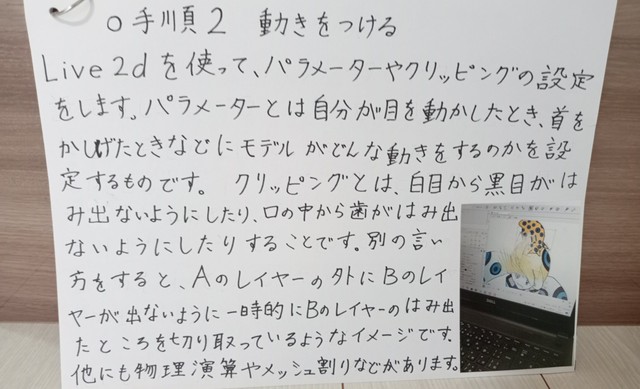 ○手順2 動きをつける
Live2dを使って、パラメーターやクリッピングの設定
をします。パラメーターとは自分が目を動かしたとき、首を
かしげたときなどにモデルがどんな動きをするのかを設
定するものです。 クリッピングとは、白目から黒目がは
み出ないようにしたり、口の中から歯がはみ出
ないようにしたりすることです。別の言い
方をすると、Aのレイヤーの外にBのレイ
ヤーが出ないように一時的にBのレイヤーのはみ出
たところを切り取っているようなイメージです。
他にも物理演算やメッシュ割りなどがあります。